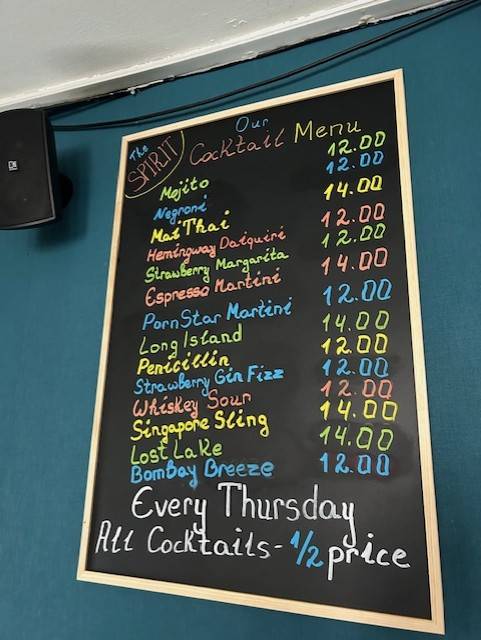 The
SPIRIT
Our
Cocktail Menu
Mojito 12.00
Negroni 12.00
Mai Thai 14.00
Hemingway Daiquiri 12.00
Strawberry Margarita 12.00
Espresso Martini 14.00
PornStar Martini 12.00
Long Island 14.00
Penicillin 12.00
Strawberry Gin Fizz 12.00
Whiskey Sour 12.00
Singapore Sling 14.00
Lost Lake 14.00
BomBay Breeze 12.00
Every Thursday
All Cocktails - 1/2 price